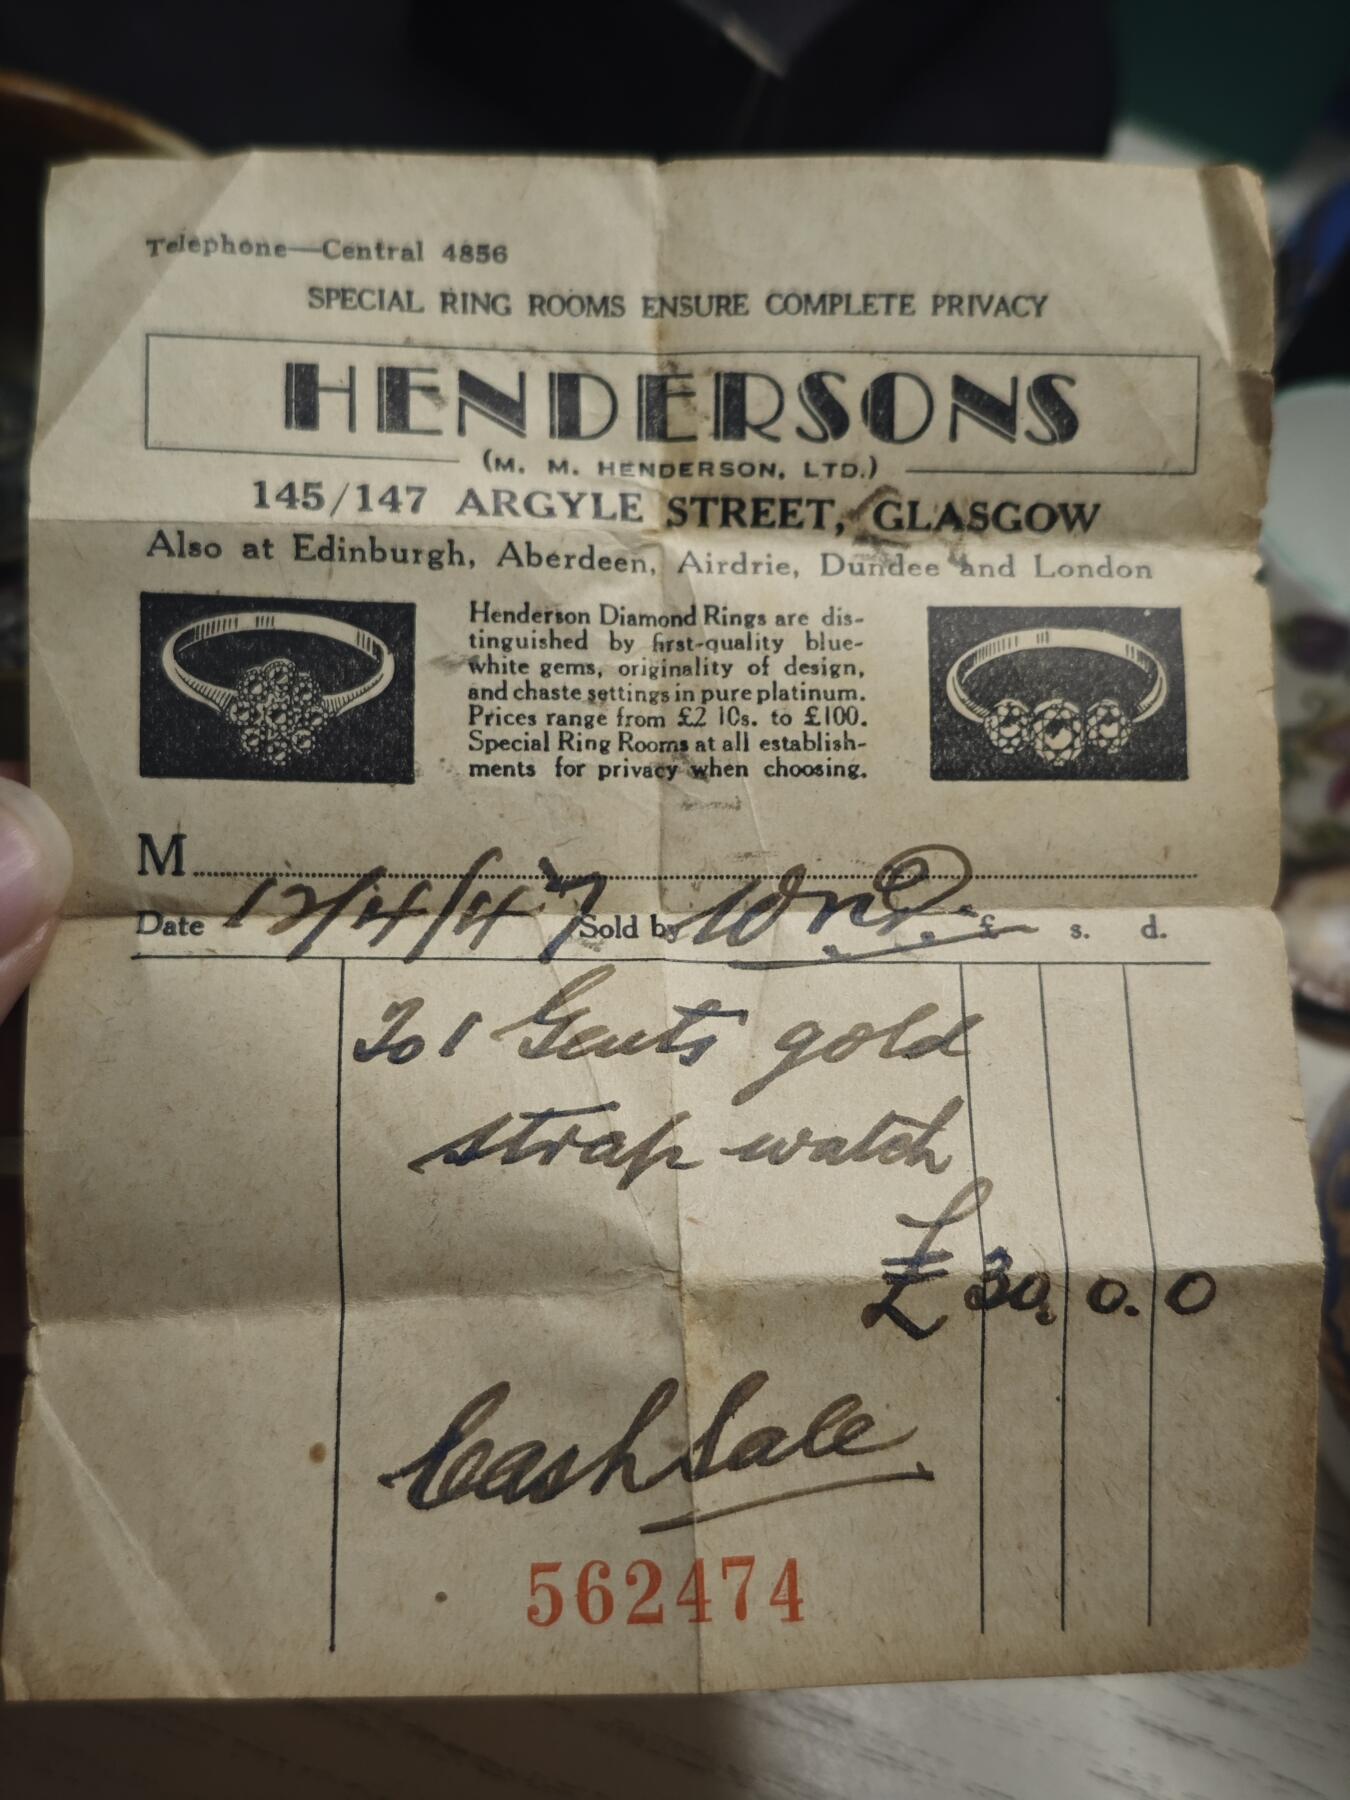 Telephone—Central 4856
SPECIAL RING ROOMS ENSURE COMPLETE PRIVACY
HENDERSONS
(M. M. HENDERSON, LTD.)
145/147 ARGYLE STREET, GLASGOW
Also at Edinburgh, Aberdeen, Airdrie, Dundee and London
Henderson Diamond Rings are dis-
tinguished by first-quality blue-
white gems, originality of design,
and chaste settings in pure platinum.
Prices range from £2 10s. to £100.
Special Ring Rooms at all establish-
ments for privacy when choosing.
M
Date 12/4/47 Sold by £ s. d.
To 1 Gents gold
strap watch
£
£ 30. 0. 0
Cash Sale
562474